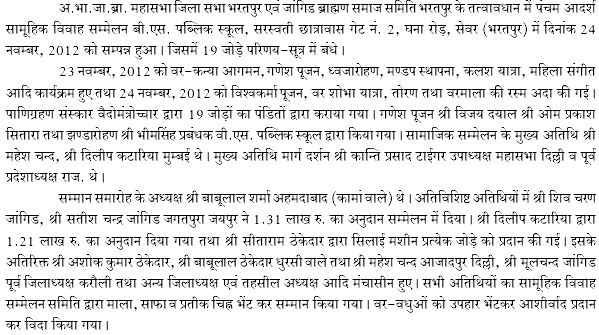 अ.भा.जा.ब्रा. महासभा जिला सभा भरतपुर एवं जांगिड ब्राह्मण समाज समिति भरतपुर के तत्वावधान में पंचम आदर्श
सामूहिक विवाह सम्मेलन बी.एस. पब्लिक स्कूल, सरस्वती छात्रावास गेट नं. 2, घना रोड़, सेवर (भरतपुर) में दिनांक 24
नवम्बर, 2012 को सम्पन्न हुआ। जिसमें 19 जोड़े परिणय-सूत्र में बंधे।
23 नवम्बर, 2012 को वर-कन्या आगमन, गणेश पूजन, ध्वजारोहण, मण्डप स्थापना, कलश यात्रा, महिला संगीत
आदि कार्यक्रम हुए तथा 24 नवम्बर, 2012 को विश्वकर्मा पूजन, वर शोभा यात्रा, तोरण तथा वरमाला की रस्म अदा की गई।
पाणिग्रहण संस्कार वैदोमंत्रोच्चार द्वारा 19 जोड़ों का पंडितों द्वारा कराया गया। गणेश पूजन श्री विजय दयाल श्री ओम प्रकाश
सितारा तथा झण्डारोहण श्री भीमसिंह प्रबंधक वी.एस. पब्लिक स्कूल द्वारा किया गया। सामाजिक सम्मेलन के मुख्य अतिथि श्री
महेश चन्द, श्री दिलीप कटारिया मुम्बई थे। मुख्य अतिथि मार्ग दर्शन श्री कान्ति प्रसाद टाईगर उपाध्यक्ष महासभा दिल्ली व पूर्व
प्रदेशाध्यक्ष राज. थे।
सम्मान समारोह के अध्यक्ष श्री बाबूलाल शर्मा अहमदाबाद (कामां वाले) थे। अतिविशिष्ट अतिथियों में श्री शिव चरण
जांगिड, श्री सतीश चन्द्र जांगिड जगतपुरा जयपुर ने 1.31 लाख रु. का अनुदान सम्मेलन में दिया। श्री दिलीप कटारिया द्वारा
1.21 लाख रु. का अनुदान दिया गया तथा श्री सीताराम ठेकेदार द्वारा सिलाई मशीन प्रत्येक जोड़े को प्रदान की गई। इसके
अतिरिक्त श्री अशोक कुमार ठेकेदार, श्री बाबूलाल ठेकेदार धुरसी वाले तथा श्री महेश चन्द आजादपुर दिल्ली, श्री मूलचन्द जांगिड
पूर्व जिलाध्यक्ष करौली तथा अन्य जिलाध्यक्ष एवं तहसील अध्यक्ष आदि मंचासीन हुए। सभी अतिथियों का सामूहिक विवाह
सम्मेलन समिति द्वारा माला, साफा व प्रतीक चिह्न भेंट कर सम्मान किया गया। वर-वधुओं को उपहार भेंटकर आशीर्वाद प्रदान
कर विदा किया गया।